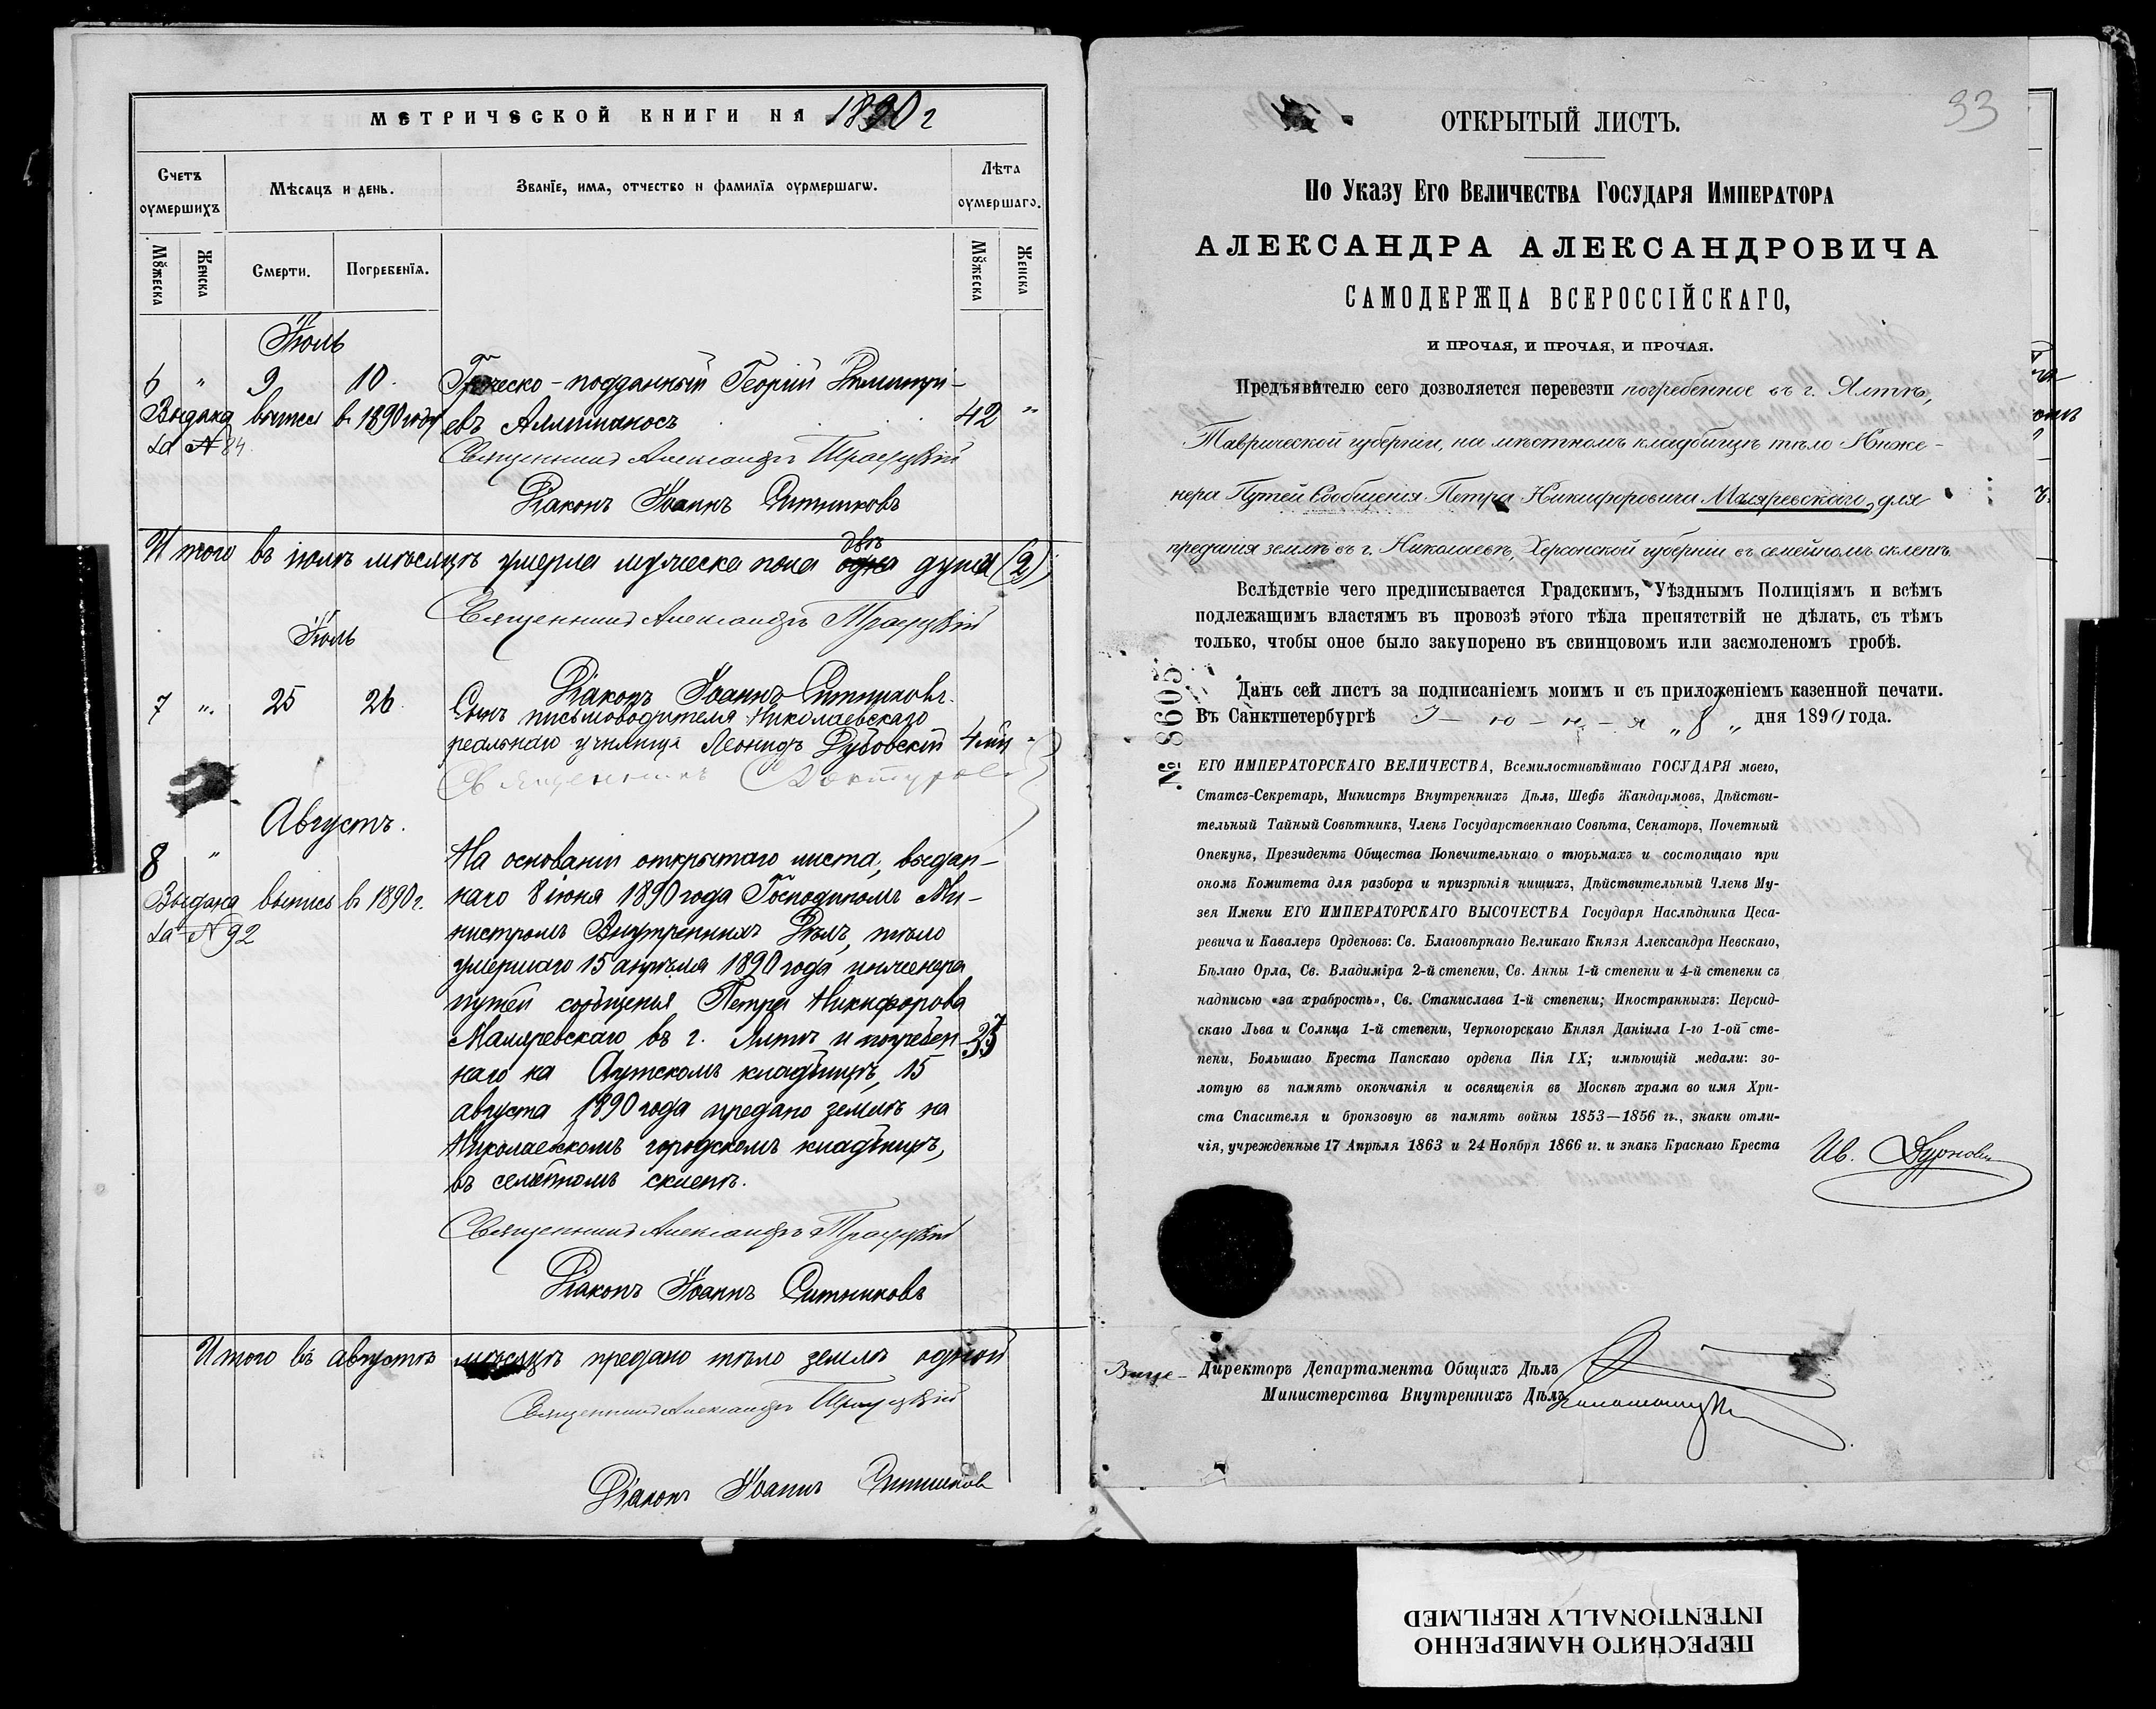 МЕТРИЧЕСКОЙ КНИГИ НА 1890 г
Счетъ оумершихъ
Мѣсяцъ и день.
Званїе, имя, отчество и фамилїя оурмершагѡ.
Лѣта оумершаго.
Мꙋжеска
Женска
Смерти.
Погребенїя.
Мꙋжеска
Женска
Іюль
6 " 9 10. Греческо-подданный Георгій Димитрі-
Выдана выпись въ 1890 году евъ 42 "
за № 84
Священникъ Александръ Траруцкій
Діаконъ Іоаннъ Ситниковъ
двѣ
Итого въ іюлѣ мѣсяцѣ умерла мужеска пола одна душа (2)
Священникъ Александръ
Іюль
Діаконъ Іоаннъ Ситниковъ.
7 ". 25 26 Сынъ письмоводителя Николаевскаго
реальнаго училища Леонидъ Дубовскій 4 "
Священникъ
Августъ.
8 " На основаніи открытаго листа, выдан-
Выдана выпись въ 1890 г. наго 8 іюня 1890 года Господиномъ Ми-
за № 92 нистромъ Внутреннихъ Дѣлъ, тѣло
умершаго 15 апрѣля 1890 года инженера
путей сообщенія Петра Никифорова
Маляревскаго въ г. Ялтѣ и погребен-
наго на Аутскомъ кладбищѣ, 15
августа 1890 года предано землѣ на
Николаевскомъ городскомъ кладбищѣ,
въ семейномъ склепѣ.
Священникъ Александръ
Діаконъ Іоаннъ Ситниковъ
Итого въ августѣ мѣсяцѣ предано тѣло землѣ одной
Священникъ Александръ
Діаконъ Іоаннъ Ситниковъ
33
ОТКРЫТЫЙ ЛИСТЪ.
По Указу Его Величества Государя Императора
АЛЕКСАНДРА АЛЕКСАНДРОВИЧА
САМОДЕРЖЦА ВСЕРОССІЙСКАГО,
И ПРОЧАЯ, И ПРОЧАЯ, И ПРОЧАЯ.
Предъявителю сего дозволяется перевезти погребенное въ г. Ялтѣ,
Таврической губерніи, на мѣстномъ кладбищѣ тѣло Инже-
нера Путей Сообщенія Петра Никифоровича Маляревскаго, для
преданія землѣ въ г. Николаевѣ, Херсонской губерніи въ семейномъ склепѣ.
Вслѣдствіе чего предписывается Градскимъ, Уѣзднымъ Полиціямъ и всѣмъ
подлежащимъ властямъ въ провозѣ этого тѣла препятствій не дѣлать, съ тѣмъ
только, чтобы оное было закупорено въ свинцовомъ или засмоленомъ гробѣ.
Данъ сей листъ за подписаніемъ моимъ и съ приложеніемъ казенной печати.
Въ Санктпетербургѣ І-ю-н-я „8„ дня 1890 года.
№ 8605
ЕГО ИМПЕРАТОРСКАГО ВЕЛИЧЕСТВА, Всемилостивѣйшаго ГОСУДАРЯ моего,
Статсъ-Секретарь, Министръ Внутреннихъ Дѣлъ, Шефъ Жандармовъ, Дѣйстви-
тельный Тайный Совѣтникъ, Членъ Государственнаго Совѣта, Сенаторъ, Почетный
Опекунъ, Президентъ Общества Попечительнаго о тюрьмахъ и состоящаго при
ономъ Комитета для разбора и призрѣнія нищихъ, Дѣйствительный Членъ Му-
зея Имени ЕГО ИМПЕРАТОРСКАГО ВЫСОЧЕСТВА Государя Наслѣдника Цеса-
ревича и Кавалеръ Орденовъ: Св. Благовѣрнаго Великаго Князя Александра Невскаго,
Бѣлаго Орла, Св. Владиміра 2-й степени, Св. Анны 1-й степени и 4-й степени съ
надписью «за храбрость», Св. Станислава 1-й степени; Иностранныхъ: Персид-
скаго Льва и Солнца 1-й степени, Черногорскаго Князя Даніила I-го 1-ой сте-
пени, Большаго Креста Папскаго ордена Пія IX; имѣющій медали: зо-
лотую въ память окончанія и освященія въ Москвѣ храма во имя Хри-
ста Спасителя и бронзовую въ память войны 1853—1856 гг., знаки отли-
чія, учрежденные 17 Апрѣля 1863 и 24 Ноября 1866 гг. и знакъ Краснаго Креста
Ив. Дурново
Вице- Директоръ Департамента Общихъ Дѣлъ
Министерства Внутреннихъ Дѣлъ
ПЕРЕСНЯТО НАМЕРЕННО
INTENTIONALLY REFILMED